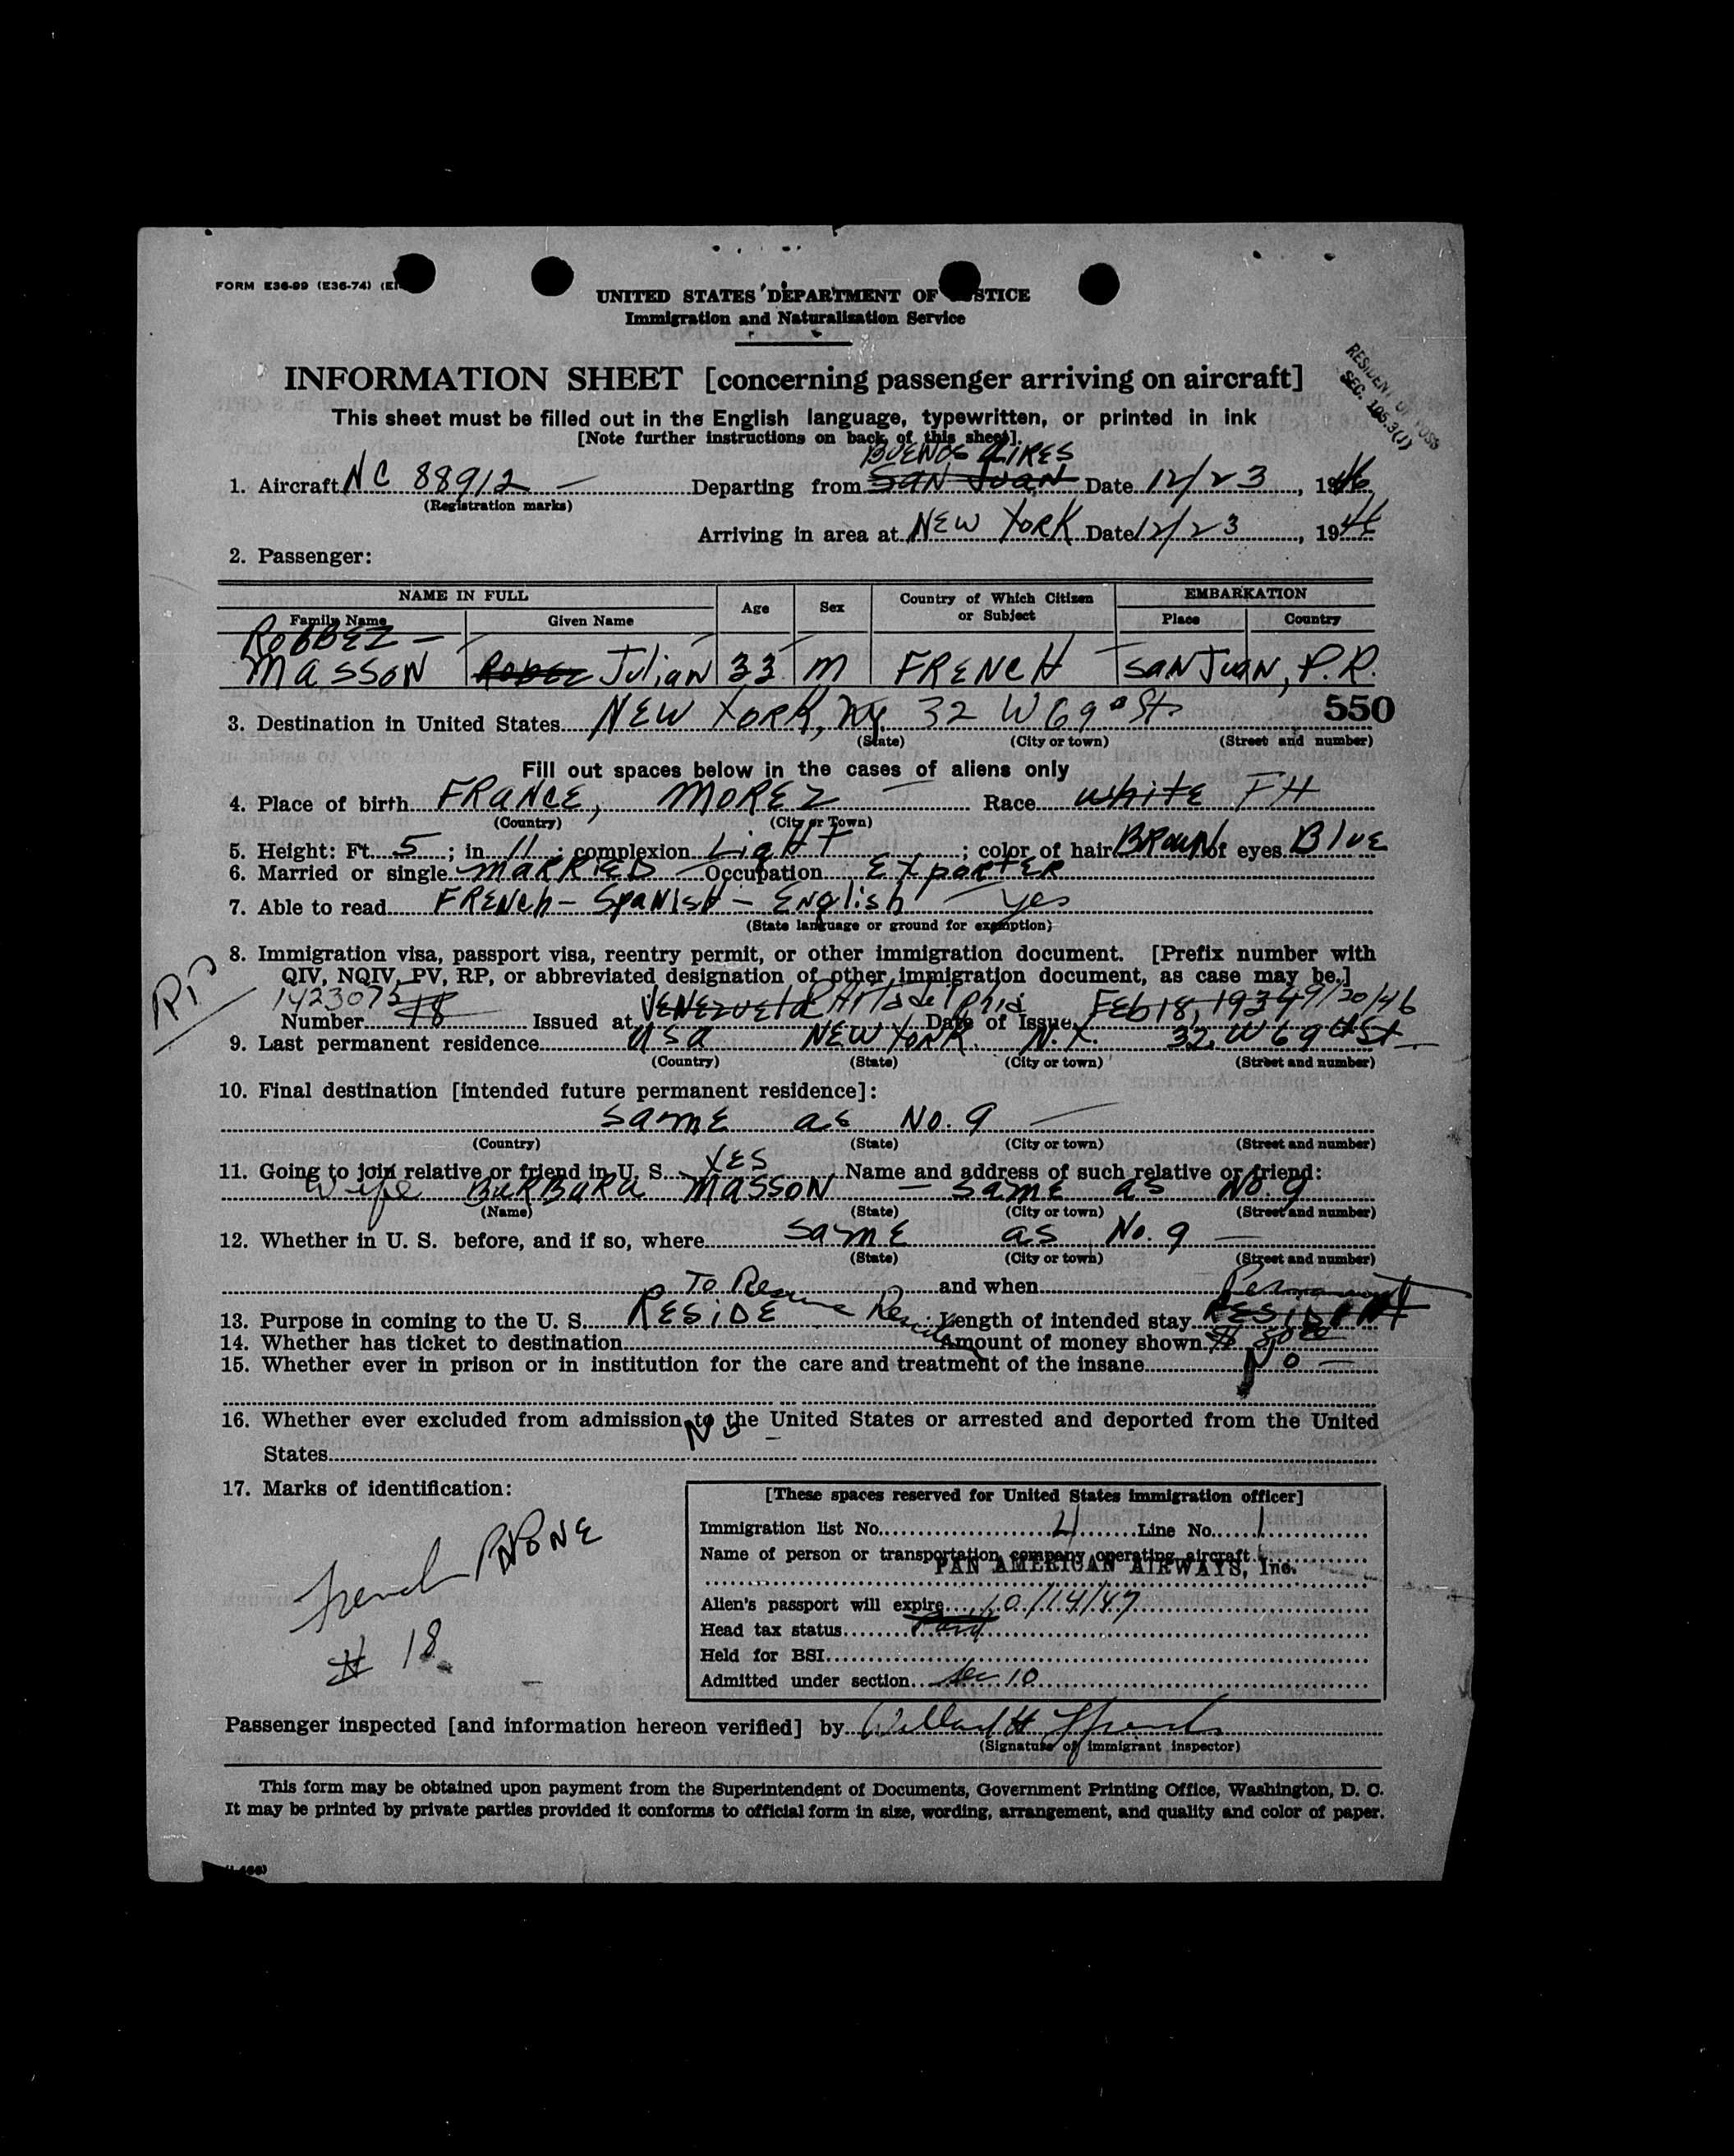 FORM E36-99 (E36-74)
UNITED STATES DEPARTMENT OF JUSTICE
Immigration and Naturalization Service
INFORMATION SHEET [concerning passenger arriving on aircraft]
RESIDENT OF POSS
SEC. 105.3(J)
This sheet must be filled out in the English language, typewritten, or printed in ink
[Note further instructions on back of this sheet].
BUENOS AIRES
1. Aircraft NC 88912 — Departing from SAN JUAN Date 12/23, 1946
(Registration marks)
Arriving in area at NEW YORK Date 12/23, 1946
2. Passenger:
NAME IN FULL Age Sex Country of Which Citizen or Subject EMBARKATION
Family Name Given Name Place Country
ROBBEZ —
MASSON Julian 33 M FRENCH SAN JUAN, P.R.
550
3. Destination in United States NEW YORK, NY. 32 W 69 St
(State) (City or town) (Street and number)
Fill out spaces below in the cases of aliens only
4. Place of birth FRANCE, MOREZ — Race white FH
(Country) (City or Town)
5. Height: Ft. 5; in 11; complexion LigHT; color of hair BROWN of eyes BlUE
6. Married or single MARRIED — Occupation EXPORTER
7. Able to read FRENCH - SPANISH - ENglish — yes
(State language or ground for exemption)
8. Immigration visa, passport visa, reentry permit, or other immigration document. [Prefix number with
QIV, NQIV, PV, RP, or abbreviated designation of other immigration document, as case may be.]
1423075
Number 18 Issued at VENEZUELA Philadelphia Date of Issue FEb 18, 1934 9/20/46
9. Last permanent residence USA NEW YORK N.Y. 32 W 69th St —
(Country) (State) (City or town) (Street and number)
10. Final destination [intended future permanent residence]:
SAME as No. 9 —
(Country) (State) (City or town) (Street and number)
11. Going to join relative or friend in U. S. YES Name and address of such relative or friend:
Wife BARBARA MASSON — SAME as No. 9
(Name) (State) (City or town) (Street and number)
12. Whether in U. S. before, and if so, where SAME as No. 9 —
(State) (City or town) (Street and number)
To Resume Residence and when Permanent
13. Purpose in coming to the U. S. RESIDE Length of intended stay RESIDENT
14. Whether has ticket to destination Amount of money shown
15. Whether ever in prison or in institution for the care and treatment of the insane No —
16. Whether ever excluded from admission to the United States or arrested and deported from the United
States No —
17. Marks of identification:
NONE
French PP
# 18
[These spaces reserved for United States immigration officer]
Immigration list No. 21 Line No. 1
Name of person or transportation company operating aircraft
PAN AMERICAN AIRWAYS, Inc.
Alien's passport will expire 10/14/47
Head tax status
Held for BSI
Admitted under section Sec 10
Passenger inspected [and information hereon verified] by
(Signature of immigrant inspector)
This form may be obtained upon payment from the Superintendent of Documents, Government Printing Office, Washington, D. C.
It may be printed by private parties provided it conforms to official form in size, wording, arrangement, and quality and color of paper.